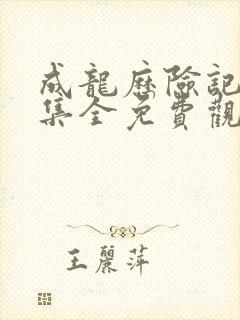 成龍歷險記
集全免費觀
王麗萍